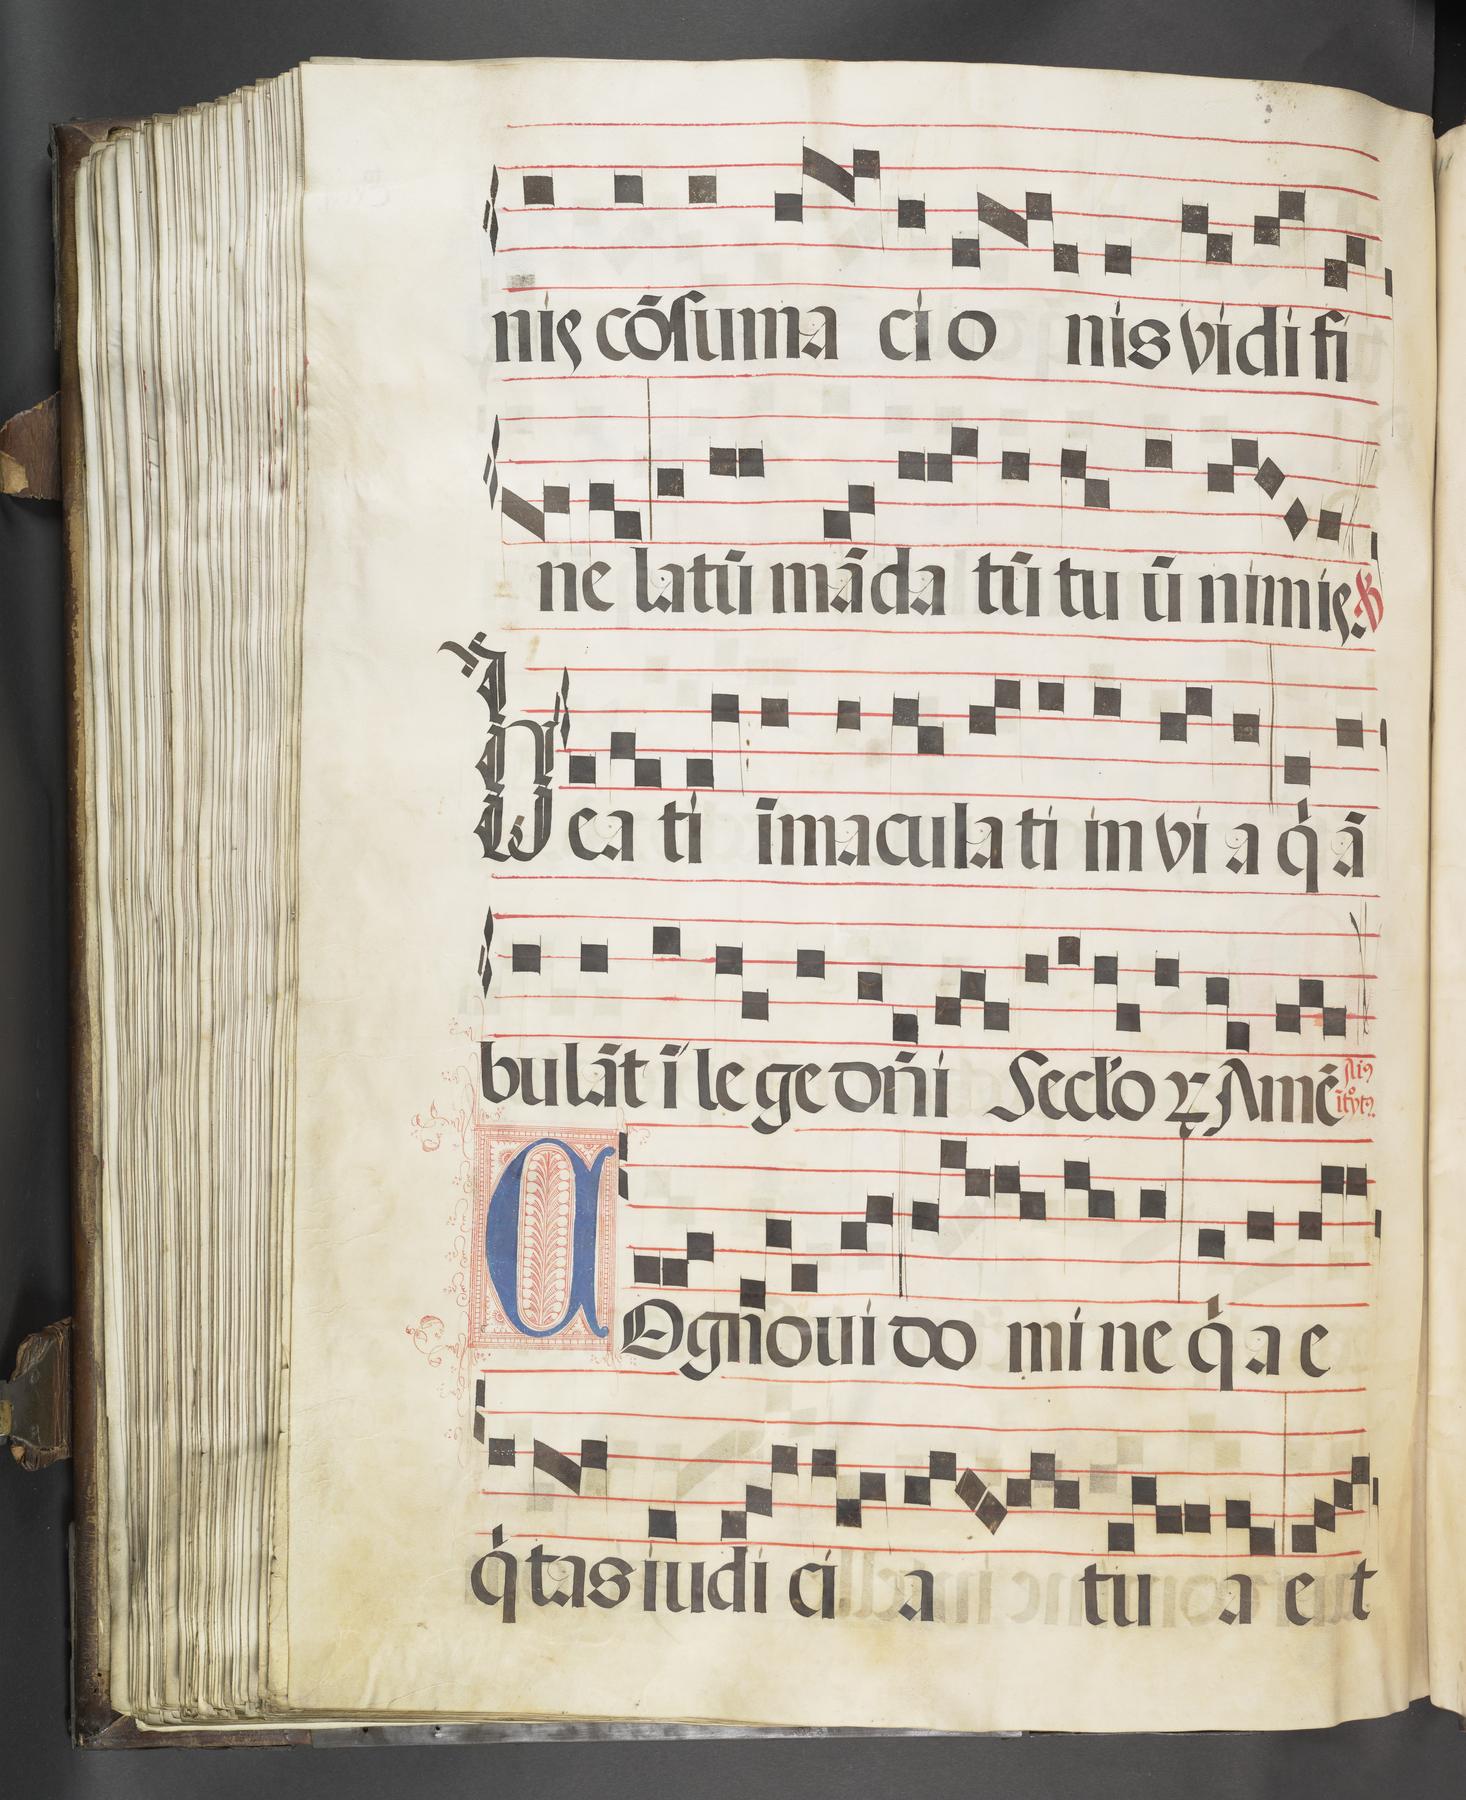 nis cōsuma ci o nis vidi fi
ne latū māda tū tu ū nimis. ℣
Bea ti īmacula ti in vi a q̇ ā
bulāt ī le ge dn̄i Secl'o ꝝ Amē
COgnoui do mi ne q̇ a e
q̇tas iudi ci a tu a et